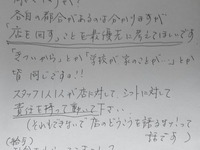 各自の都合があるのは分かりますが
「店を回す」ことを最優先に考えてほしいです
"きついから"とか"学校が家のことが…"とか
皆同じです!!
スタッフ1人1人が店に対して シフトに対して
責任を持って動いて下さい
(それもできないで店のどうこうを語るな!って
話です)